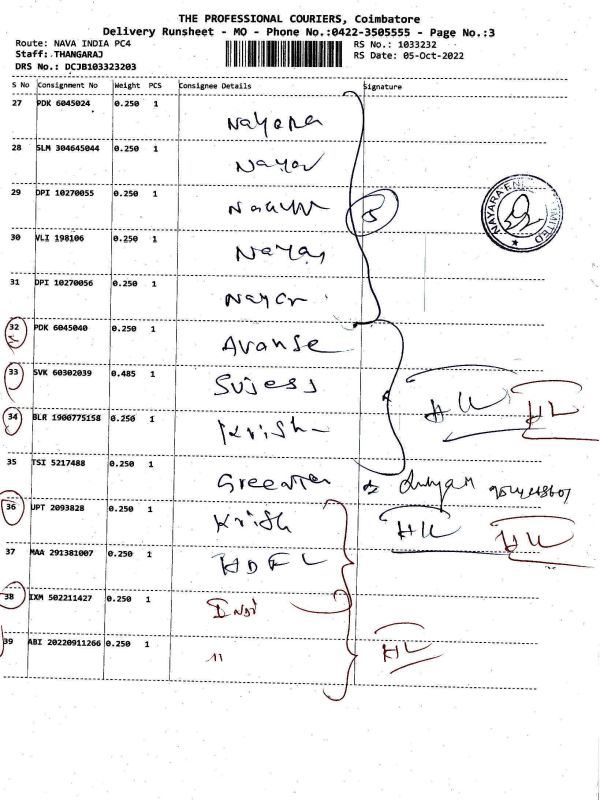 THE PROFESSIONAL COURIERS, Coimbatore
Delivery Runsheet - MO - Phone No.:0422-3505555 - Page No.:3
Route: NAVA INDIA PC4
RS No.: 1033232
Staff: THANGARAJ
RS Date: 05-Oct-2022
DRS No.: DCJB103323203
S No Consignment No Weight PCS Consignee Details Signature
27 PDK 6045024 0.250 1 Nayara
28 SLM 304645044 0.250 1 Nayar
29 DPI 10270055 0.250 1
5
NAYARA LIMITED
30 VLI 198106 0.250 1 Nayar
31 DPI 10270056 0.250 1 Nayar
32 PDK 6045040 0.250 1 Avanse
33 SVK 60302039 0.485 1
34 BLR 1900775158 0.250 1 Krish
35 TSI 5217488 0.250 1
36 UPT 2093828 0.250 1 Krish
37 MAA 291381007 0.250 1 HDFC
38 IXM 502211427 0.250 1
39 ABI 20220911266 0.250 1 11